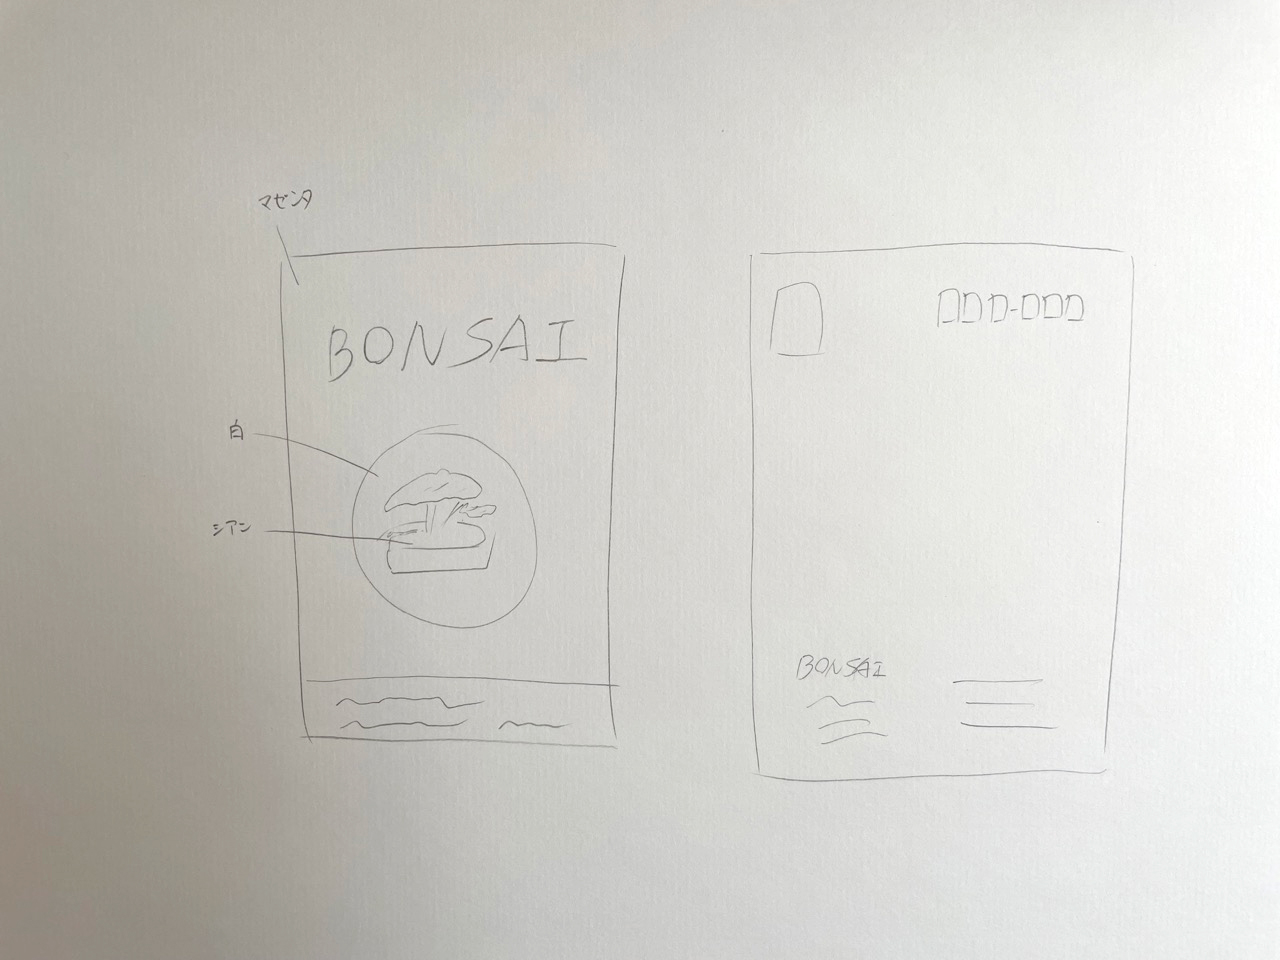 マゼンタ
BONSAI
白
シアン
BONSAI